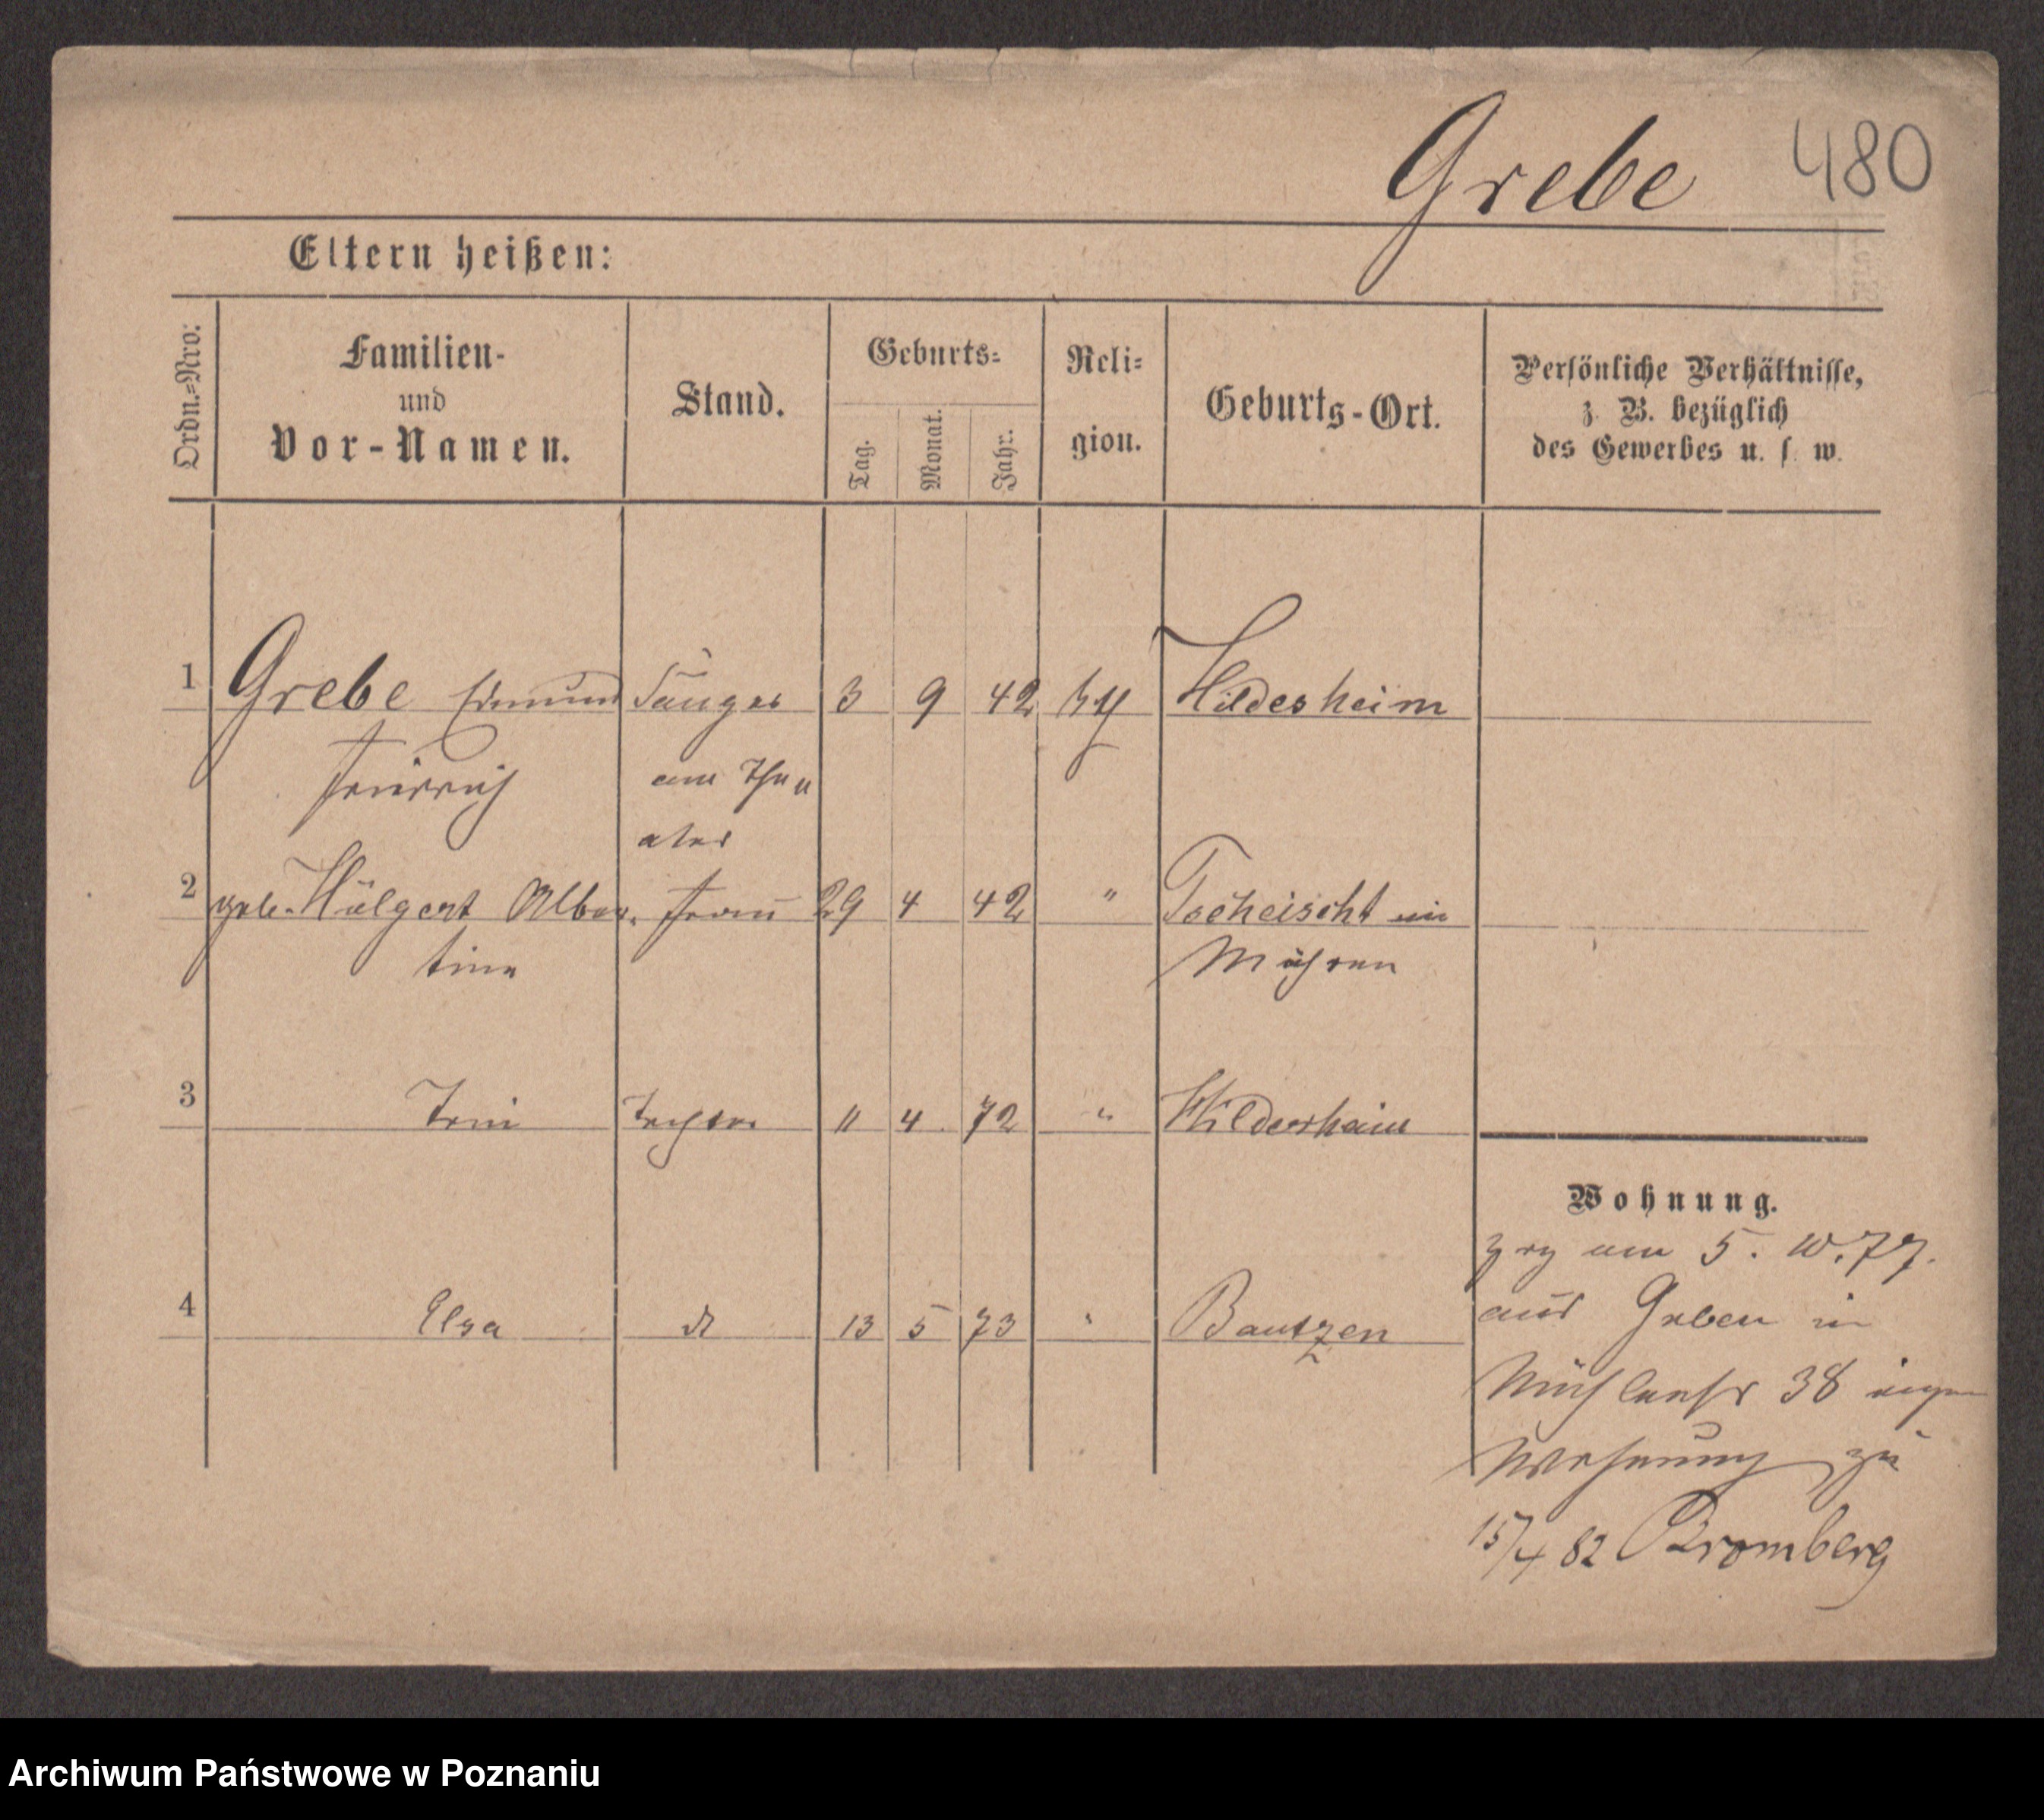 Grebe 480
Eltern heißen:
Ordn.=Nro:
Familien-
und
Vor-Namen.
Stand.
Geburts=
Tag.
Monat.
Jahr.
Reli=
gion.
Geburts-Ort.
Persönliche Verhältnisse,
z. B. bezüglich
des Gewerbes u. s. w.
1 Grebe Edmund Sänger 3 9 42 Hildesheim
Friedrich am
2 geb. Hülgert Alber- Frau 29 4 42 " Tscheischt in
tine Mähren
3 Tochter 11 4 72 " Hildesheim
4 Elsa do 13 5 73 " Bautzen
Wohnung.
zog am 5. 10. 77.
aus in
Mühlenstr 38
Wohnung zu
15/4 82 Bromberg
Archiwum Państwowe w Poznaniu